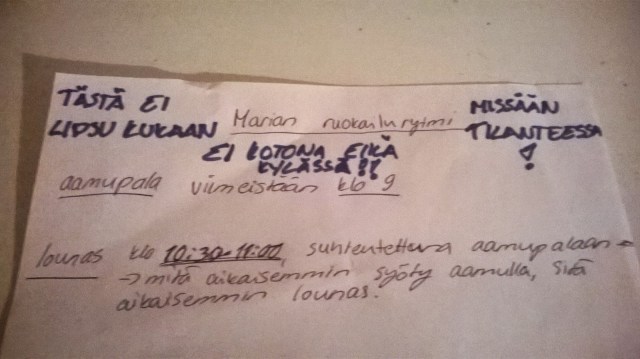 TÄSTÄ EI
LIPSU KUKAAN
Marian ruokailurytmi
MISSÄÄN
TILANTEESSA
!
EI KOTONA EIKÄ
KYLÄSSÄ!!
aamupala viimeistään klo 9
lounas klo 10:30-11:00, suhteutettuna aamupalaan →
→ mitä aikaisemmin syöty aamulla, sitä
aikaisemmin lounas.